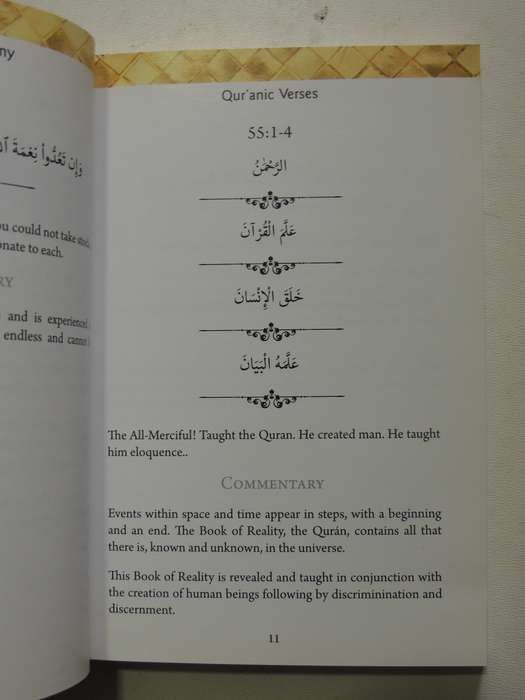 ny
وَإِن تَعُدُّوا۟ نِعْمَةَ
ou could not take stock,
onate to each.
RY
and is experienced
endless and cannot
Qur'anic Verses
55:1-4
الرَّحْمَٰنُ
عَلَّمَ الْقُرْآنَ
خَلَقَ الْإِنْسَانَ
عَلَّمَهُ الْبَيَانَ
The All-Merciful! Taught the Quran. He created man. He taught
him eloquence..
Commentary
Events within space and time appear in steps, with a beginning
and an end. The Book of Reality, the Qurán, contains all that
there is, known and unknown, in the universe.
This Book of Reality is revealed and taught in conjunction with
the creation of human beings following by discriminination and
discernment.
11